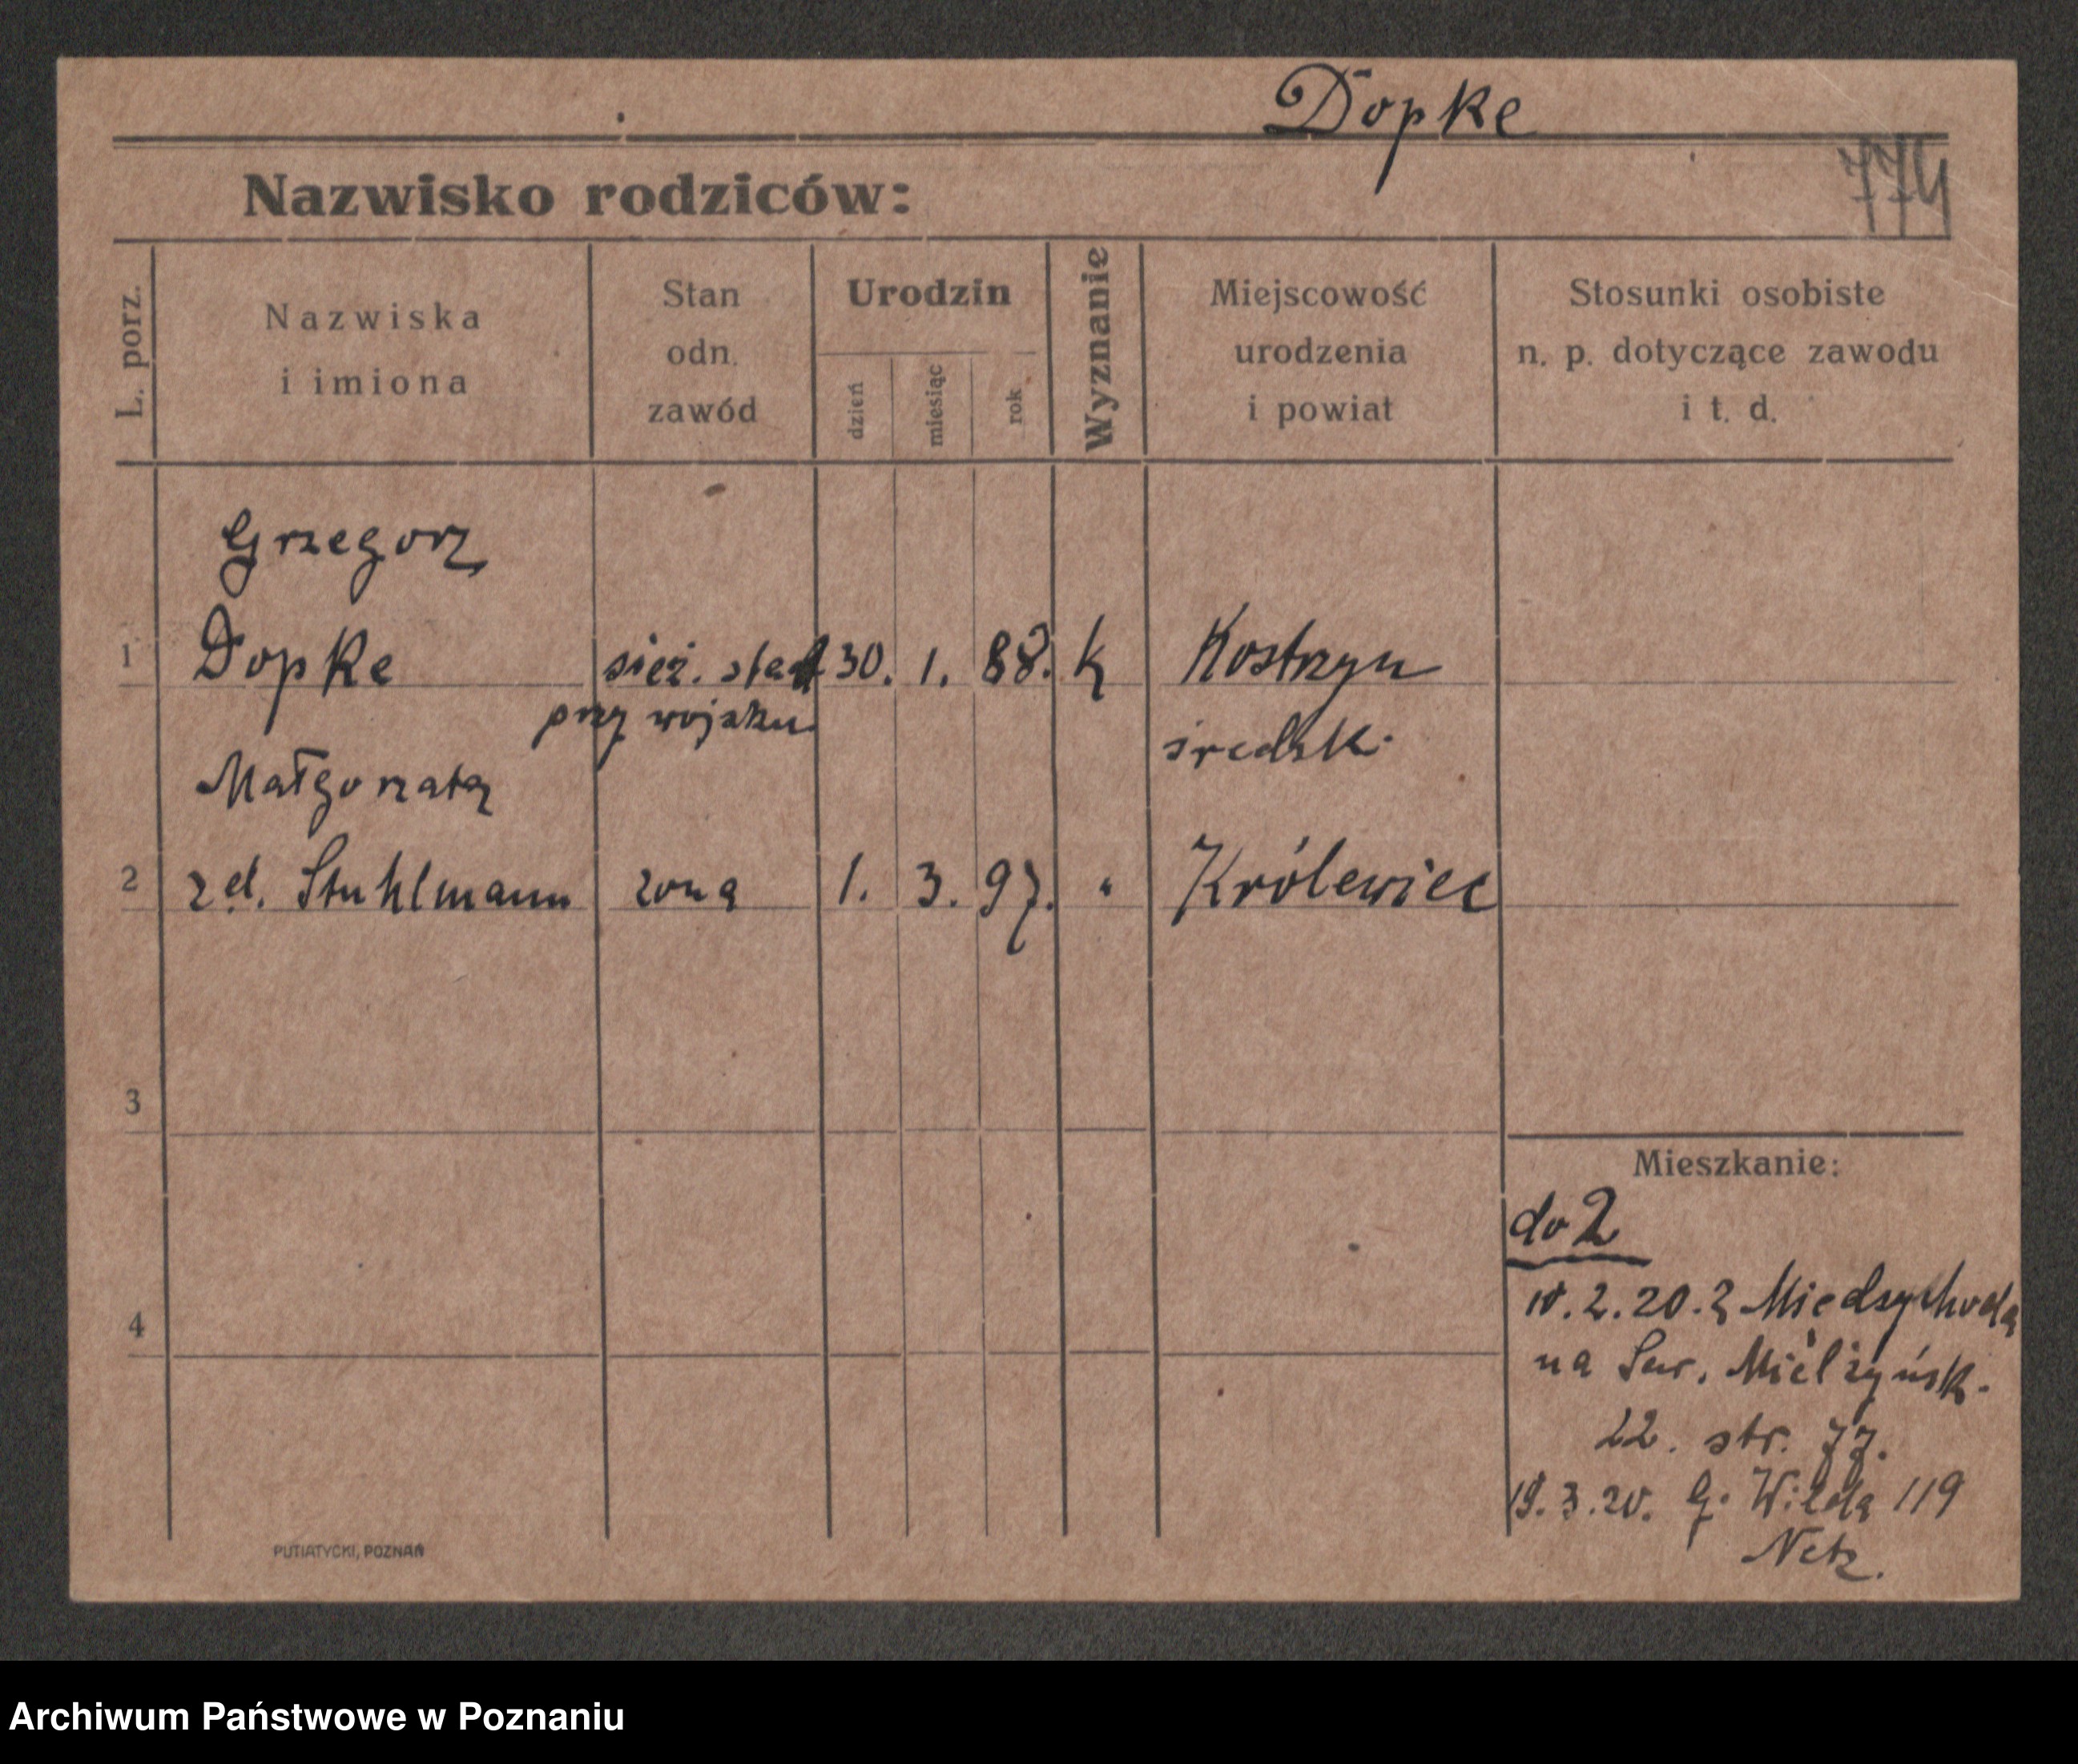 Dopke
774
Nazwisko rodziców:
L. porz.
Nazwiska
i imiona
Stan
odn.
zawód
Urodzin
dzień
miesiąc
rok
Wyznanie
Miejscowość
urodzenia
i powiat
Stosunki osobiste
n. p. dotyczące zawodu
i t. d.
Grzegorz
1 Dopke sierż. 30. 1. 88. k Kostrzyn
przy wojsku średzk.
Małgorzata
2 zd. Stuhlmann żona 1. 3. 97. " Królewiec
3
Mieszkanie:
do 2
10.2.20. z Międzychoda
4
na Sew. Mielżyńsk.
22. str. 77.
19.3.20. G. Wilda 119
Netz.
PUTIATYCKI, POZNAŃ
Archiwum Państwowe w Poznaniu